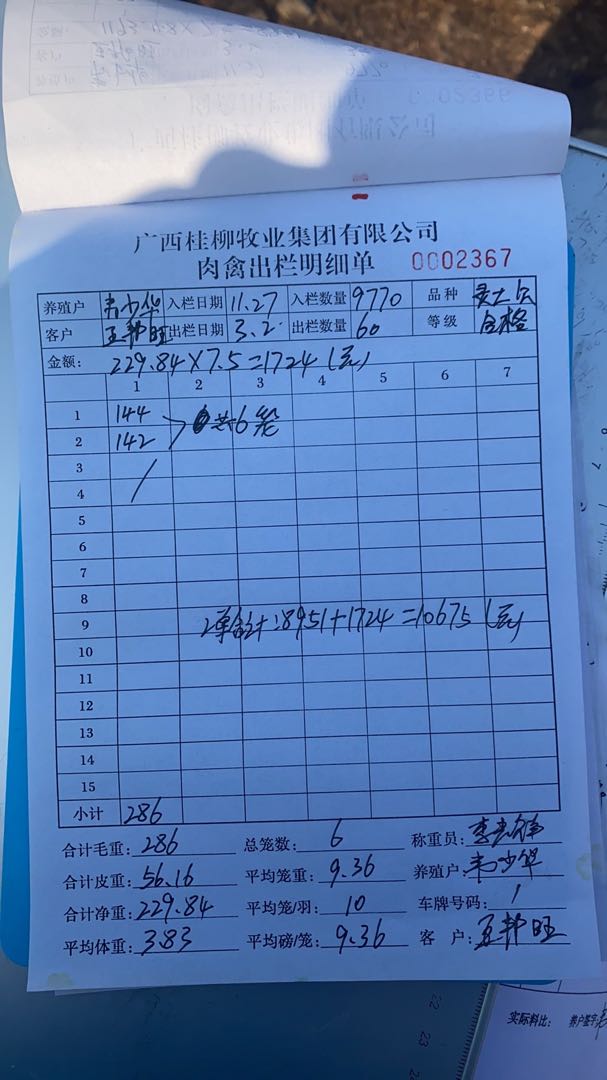 广西桂柳牧业集团有限公司
肉禽出栏明细单 0002367
养殖户 韦少华 入栏日期 11.27 入栏数量 9770 品种
客户 王邦旺 出栏日期 3.2 出栏数量 60 等级 合格
金额: 229.84×7.5=1724(元)
1 2 3 4 5 6 7
1 144
共6笼
2 142
3
4
5
6
7
8
9 2单合计:8951+1724=10675(元)
10
11
12
13
14
15
小计 286
合计毛重: 286 总笼数: 6 称重员:
合计皮重: 56.16 平均笼重: 9.36 养殖户: 韦少华
合计净重: 229.84 平均笼/羽: 10 车牌号码: /
平均体重: 3.83 平均磅/笼: 9.36 客户: 王邦旺
实际料比: 养户签字:
22
23